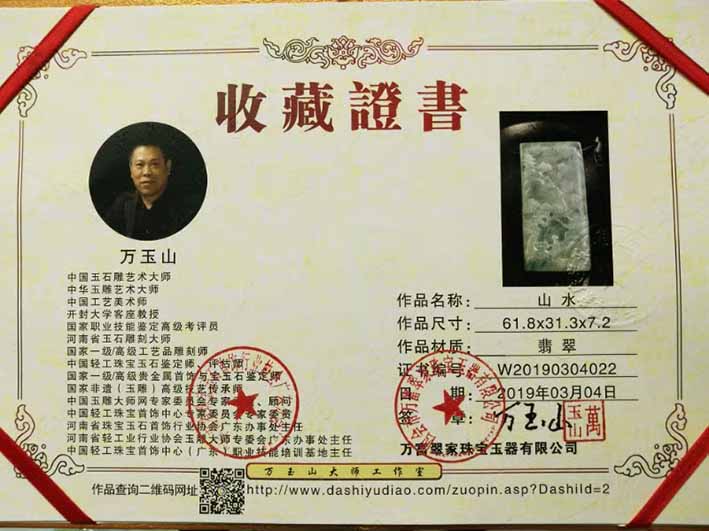 收藏證書
万玉山
中国玉石雕艺术大师
中华玉雕艺术大师
中国工艺美术师
开封大学客座教授
国家职业技能鉴定高级考评员
河南省玉石雕刻大师
国家一级/高级工艺品雕刻师
中国轻工珠宝玉石鉴定师、评估师
国家一级/高级贵金属首饰与宝玉石鉴定师
国家非遗（玉雕）高级技艺传承师
中国玉雕大师网专家委员会专家 、顾问
中国轻工珠宝首饰中心专家委员会专家委员
河南省珠宝玉石首饰行业协会广东办事处主任
河南省轻工业行业协会玉雕大师专委会广东办事处主任
中国轻工珠宝首饰中心（广东）职业技能培训基地主任
作品名称: 山水
作品尺寸: 61.8x31.3x7.2
作品材质: 翡翠
证书编号: W20190304022
日期: 2019年03月04日
签章: 万玉山
萬玉山
万富翠家珠宝玉器有限公司
万玉山大师工作室
作品查询二维码网址
http://www.dashiyudiao.com/zuopin.asp?DashiId=2